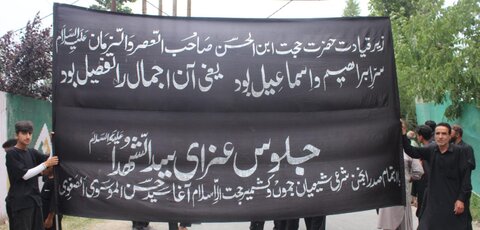 زیر قیادت حضرت حجت ابن الحسن صاحب العصر والزمان علیہ السلام
سرّ ابراهیم و اسماعیل بود یعنی آن اجمال را تفصیل بود
جلوس عزای سید الشهداء علیہ السلام
باہتمام صدر انجمن شرعی شیعیان جموں و کشمیر حجت الاسلام آغا سید حسن الموسوی الصفوی